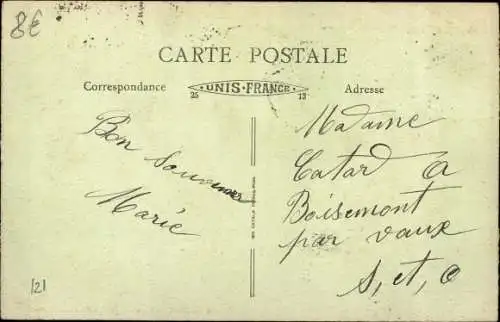 8€
CARTE POSTALE
Correspondance
UNIS-FRANCE
25
13
Adresse
Bon souvenir
Marie
Madame
Catard a
Boisemont
par vaux
S, et, O
121